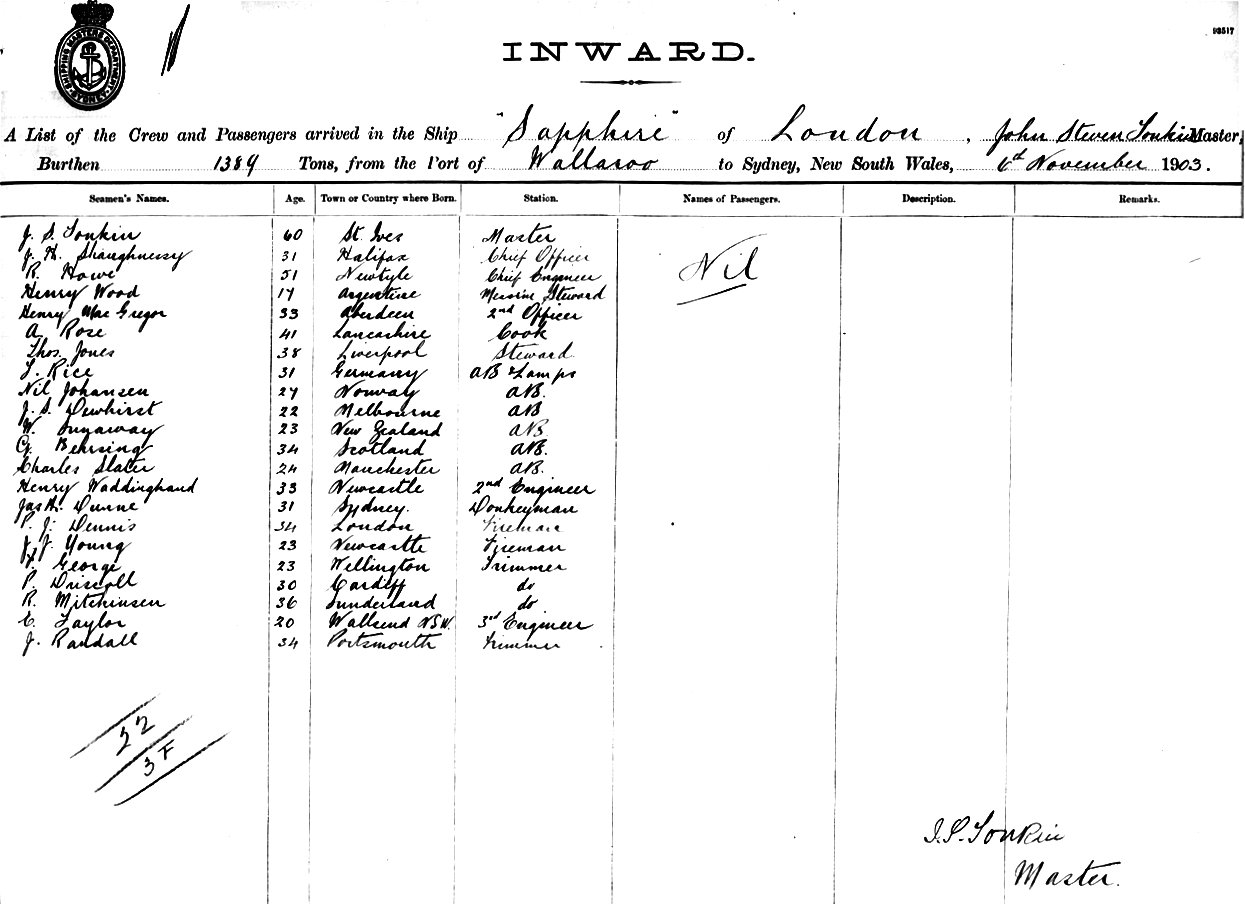 SHIPPING MASTERS DEPARTMENT SYDNEY
93517
INWARD.
A List of the Crew and Passengers arrived in the Ship "Sapphire" of London, John Steven Tonkin Master,
Burthen 1389 Tons, from the Port of Wallaroo to Sydney, New South Wales, 6th November 1903.
Seamen's Names. Age. Town or Country where Born. Station. Names of Passengers. Description. Remarks.
J. S. Tonkin 60 St. Ives Master
J. H. Shaughnessy 31 Halifax Chief Officer
R. Howe 51 Newtyle Chief Engineer
Nil
Henry Wood 17 Argentine Messrm Steward
Henry MacGregor 33 Aberdeen 2nd Officer
A. Rose 41 Lancashire Cook
Thos. Jones 38 Liverpool Steward
J. Rice 31 Germany AB & Lamps
Nil Johansen 27 Norway AB.
J. S. Dewhirst 22 Melbourne AB
W. 23 New Zealand AB
G. Behrsing 34 Scotland AB.
Charles Slater 24 Manchester AB.
Henry Waddinghand 33 Newcastle 2nd Engineer
Jas H. Dunne 31 Sydney. Donkeyman
P. J. Dennis 34 London Fireman
J. Young 23 Newcastle Fireman
George 23 Wellington Trimmer
P. Driscoll 30 Cardiff do
R. Mitchinsen 36 Sunderland do
C. Taylor 20 Wallsend NSW. 3rd Engineer
J. Randall 34 Portsmouth Trimmer
22
3 F
J. S. Tonkin
Master.